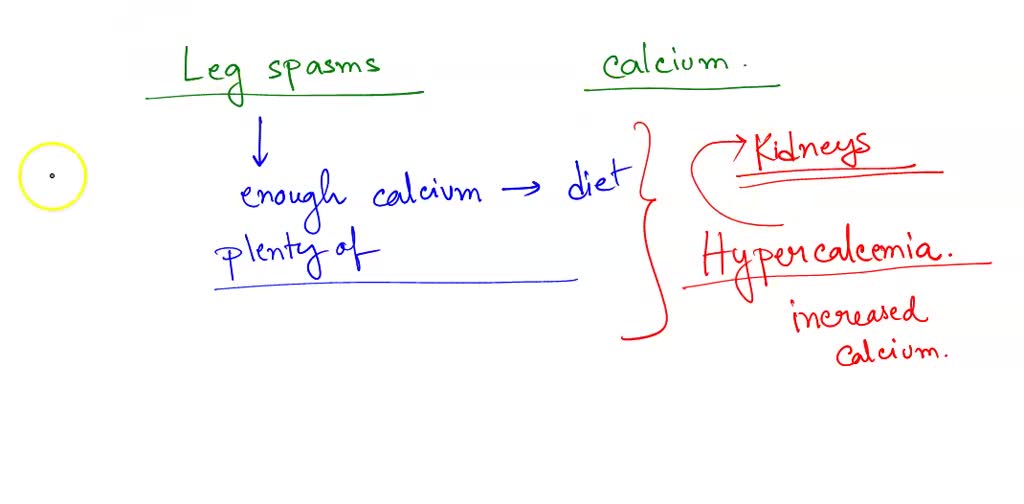 Leg spasms
calcium.
enough calcium → diet
plenty of
Kidneys
Hypercalcemia.
increased
calcium.